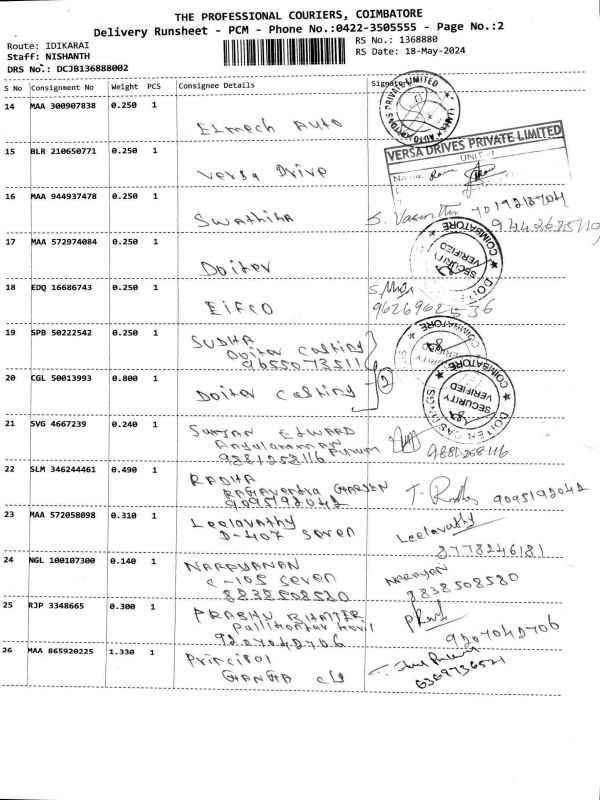 THE PROFESSIONAL COURIERS, COIMBATORE
Delivery Runsheet - PCM - Phone No.:0422-3505555 - Page No.:2
Route: IDIKARAI
RS No.: 1368880
Staff: NISHANTH
RS Date: 18-May-2024
DRS No.: DCJB136888002
S No Consignment No Weight PCS Consignee Details Signature
14 MAA 300907838 0.250 1
Elmech Auto
15 BLR 210650771 0.250 1
VERSA DRIVES PRIVATE LIMITED
UNIT - 1
Versa Drive
16 MAA 944937478 0.250 1
Swathika
17 MAA 572974084 0.250 1
COIMBATORE
SECURITY VERIFIED
Doiter
18 EDQ 16686743 0.250 1
EIFCO
9626962536
19 SPB 50222542 0.250 1
SUDHA
Doiter casting
9655073511
COIMBATORE
20 CGL 50013993 0.800 1
Doiter casting
2
DOITER CASTINGS
COIMBATORE
SECURITY VERIFIED
21 SVG 4667239 0.240 1
Angalamman
9881258116 Puram
22 SLM 346244461 0.490 1
RADHA
Raghavendra GARDEN
9095192042
9095192042
23 MAA 572058098 0.310 1
Leelavathy
D-407 seven
Leelavathy
8778246181
24 NGL 100107300 0.140 1
NARAYANAN
C-105 seven
8838508580
Narayan
8838508580
25 RJP 3348665 0.300 1
PRABHU
9207042706
9207042706
26 MAA 865920225 1.330 1
GANGA
6369736521